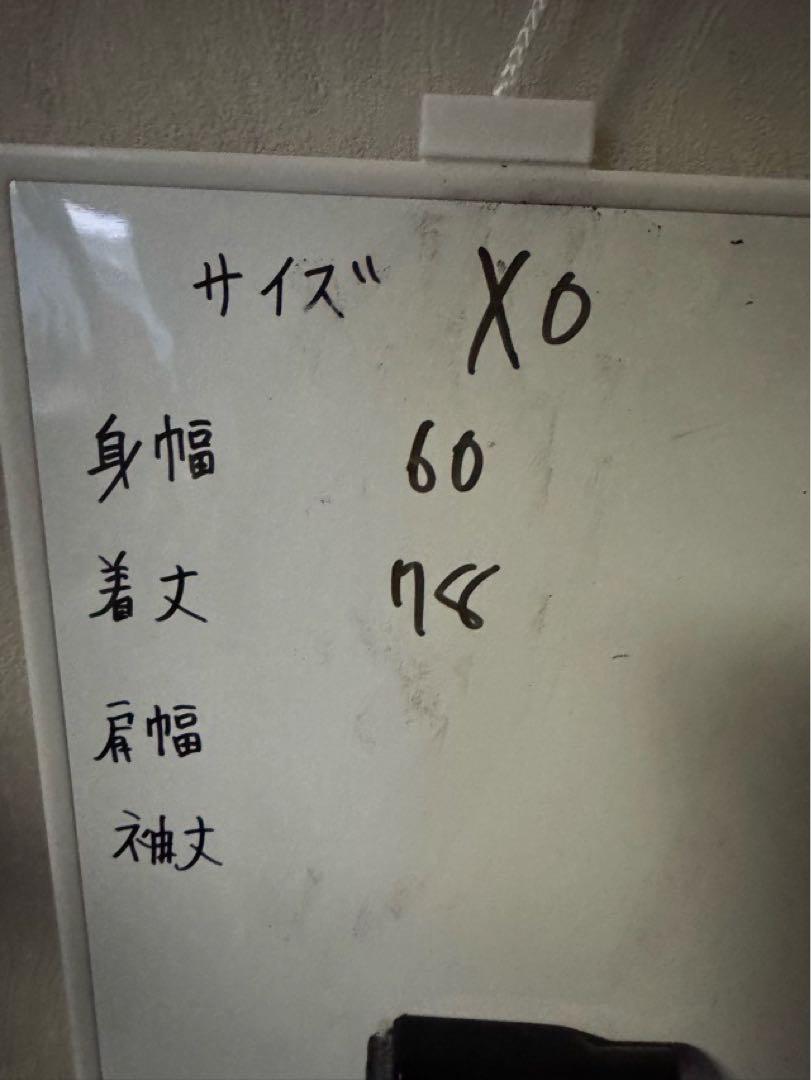 サイズ XO
身幅 60
着丈 78
肩幅
袖丈